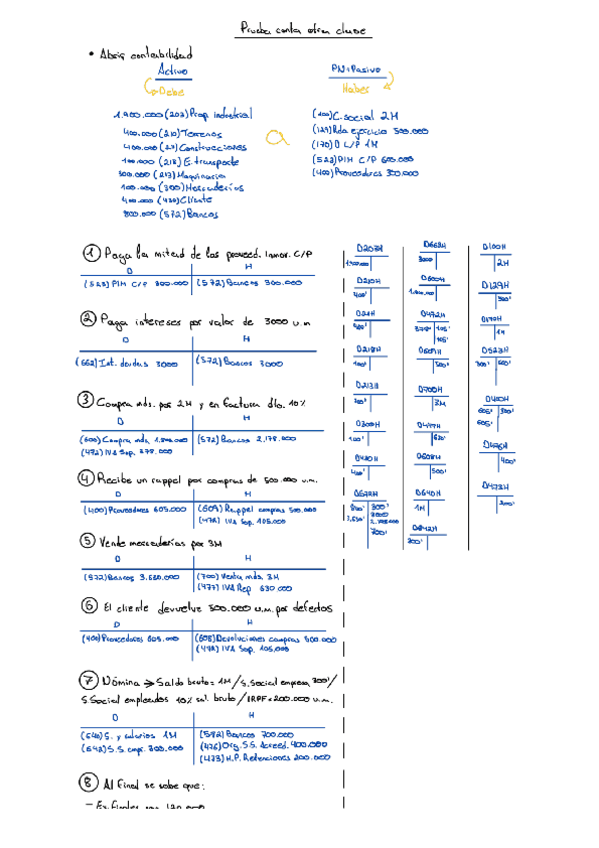 Prueba conta otra clase
• Abrir contabilidad
Activo
Debe
PN+Pasivo
Haber
1.900.000 (203) Prop. industrial
400.000 (210) Terrenos
400.000 (211) Construcciones
100.000 (218) E. transporte
300.000 (213) Maquinaria
100.000 (300) Mercaderías
400.000 (430) Cliente
800.000 (572) Bancos
a
(100) C. social 2M
(129) Rdo ejercicio 300.000
(170) D L/P 1M
(523) PIM C/P 600.000
(400) Proveedores 300.000
① Paga la mitad de los proveed. inmov. C/P
D H
(523) PIM C/P 300.000 (572) Bancos 300.000
② Paga intereses por valor de 3000 u.m
D H
(662) Int. deudas 3000 (572) Bancos 3000
③ Compra mds. por 2M y en factura dto. 10%
D H
(600) Compra mds 1.800.000 (572) Bancos 2.178.000
(472) IVA Sop. 378.000
④ Recibe un rappel por compras de 500.000 u.m.
D H
(400) Proveedores 605.000 (609) Rappel compras 500.000
(472) IVA Sop. 105.000
⑤ Vende mercaderías por 3M
D H
(572) Bancos 3.630.000 (700) Venta mds. 3M
(477) IVA Rep 630.000
⑥ El cliente devuelve 500.000 u.m. por defectos
D H
(400) Proveedores 605.000 (608) Devoluciones compras 500.000
(472) IVA Sop. 105.000
⑦ Nómina → Saldo bruto = 1M / S. Social empresa 300' /
S. Social empleados 10% sal. bruto / IRPF = 200.000 u.m.
D H
(640) S. y salarios 1M (572) Bancos 700.000
(642) S.S. empr. 300.000 (476) Org. S.S. Acreed. 400.000
(473) H.P. Retenciones 200.000
⑧ Al final se sabe que:
D203H
1.900.000
D210H
400'
D211H
400'
D218H
100'
D213H
300'
D300H
100'
D430H
400'
D572H
800' 300'
3.630' 3000
2.178.000
700'
D662H
3000
D600H
1.800.000
D472H
378' 105'
105'
D609H
500'
D700H
3M
D477H
630'
D608H
500'
D640H
1M
D642H
300'
D100H
2M
D129H
300'
D170H
1M
D523H
300' 600'
D400H
605' 300'
605'
D476H
400'
D473H
200'